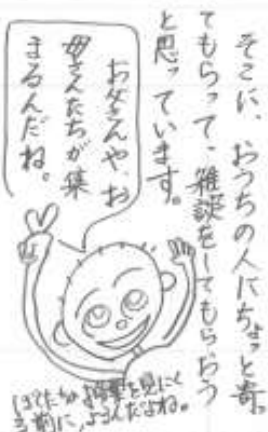 そこに、おうちの人にちょっと寄っ
てもらって、雑談をしてもらおう
と思っています。
お父さんや、お
母さんたちが集
まるんだね。
ぼくたちの授業を見にく
る前に、よるんだよね。